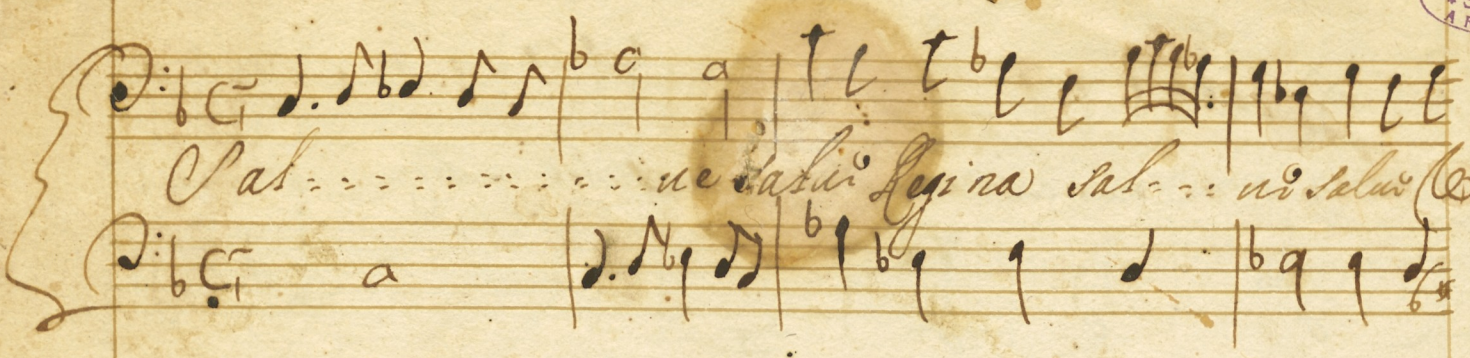 Sal - - - - - - - - ue Salue Regina sal - - - ue salue